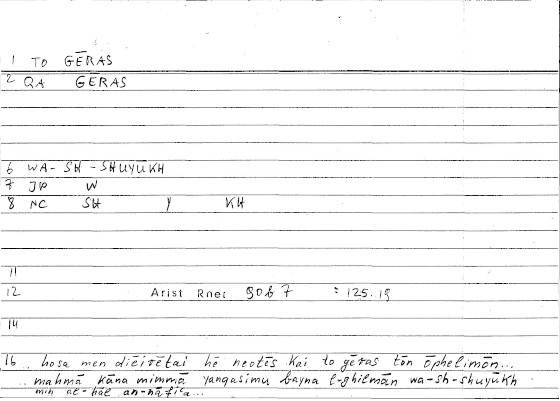 1 TO GĒRAS
2 QA GĒRAS
6 WA-SH-SHUYŪKH
7 JP W
8 NC SH Y KH
11
12 Arist Rhet 90b7 : 125.19
14
16 hosa men diēirētai hē neotēs kai to gēras tōn ōphelimōn...
mahmā kāna mimmā yanqasimu bayna l-ghilmān wa-sh-shuyūkh
min al-ḥāl an-nāfiʿa...